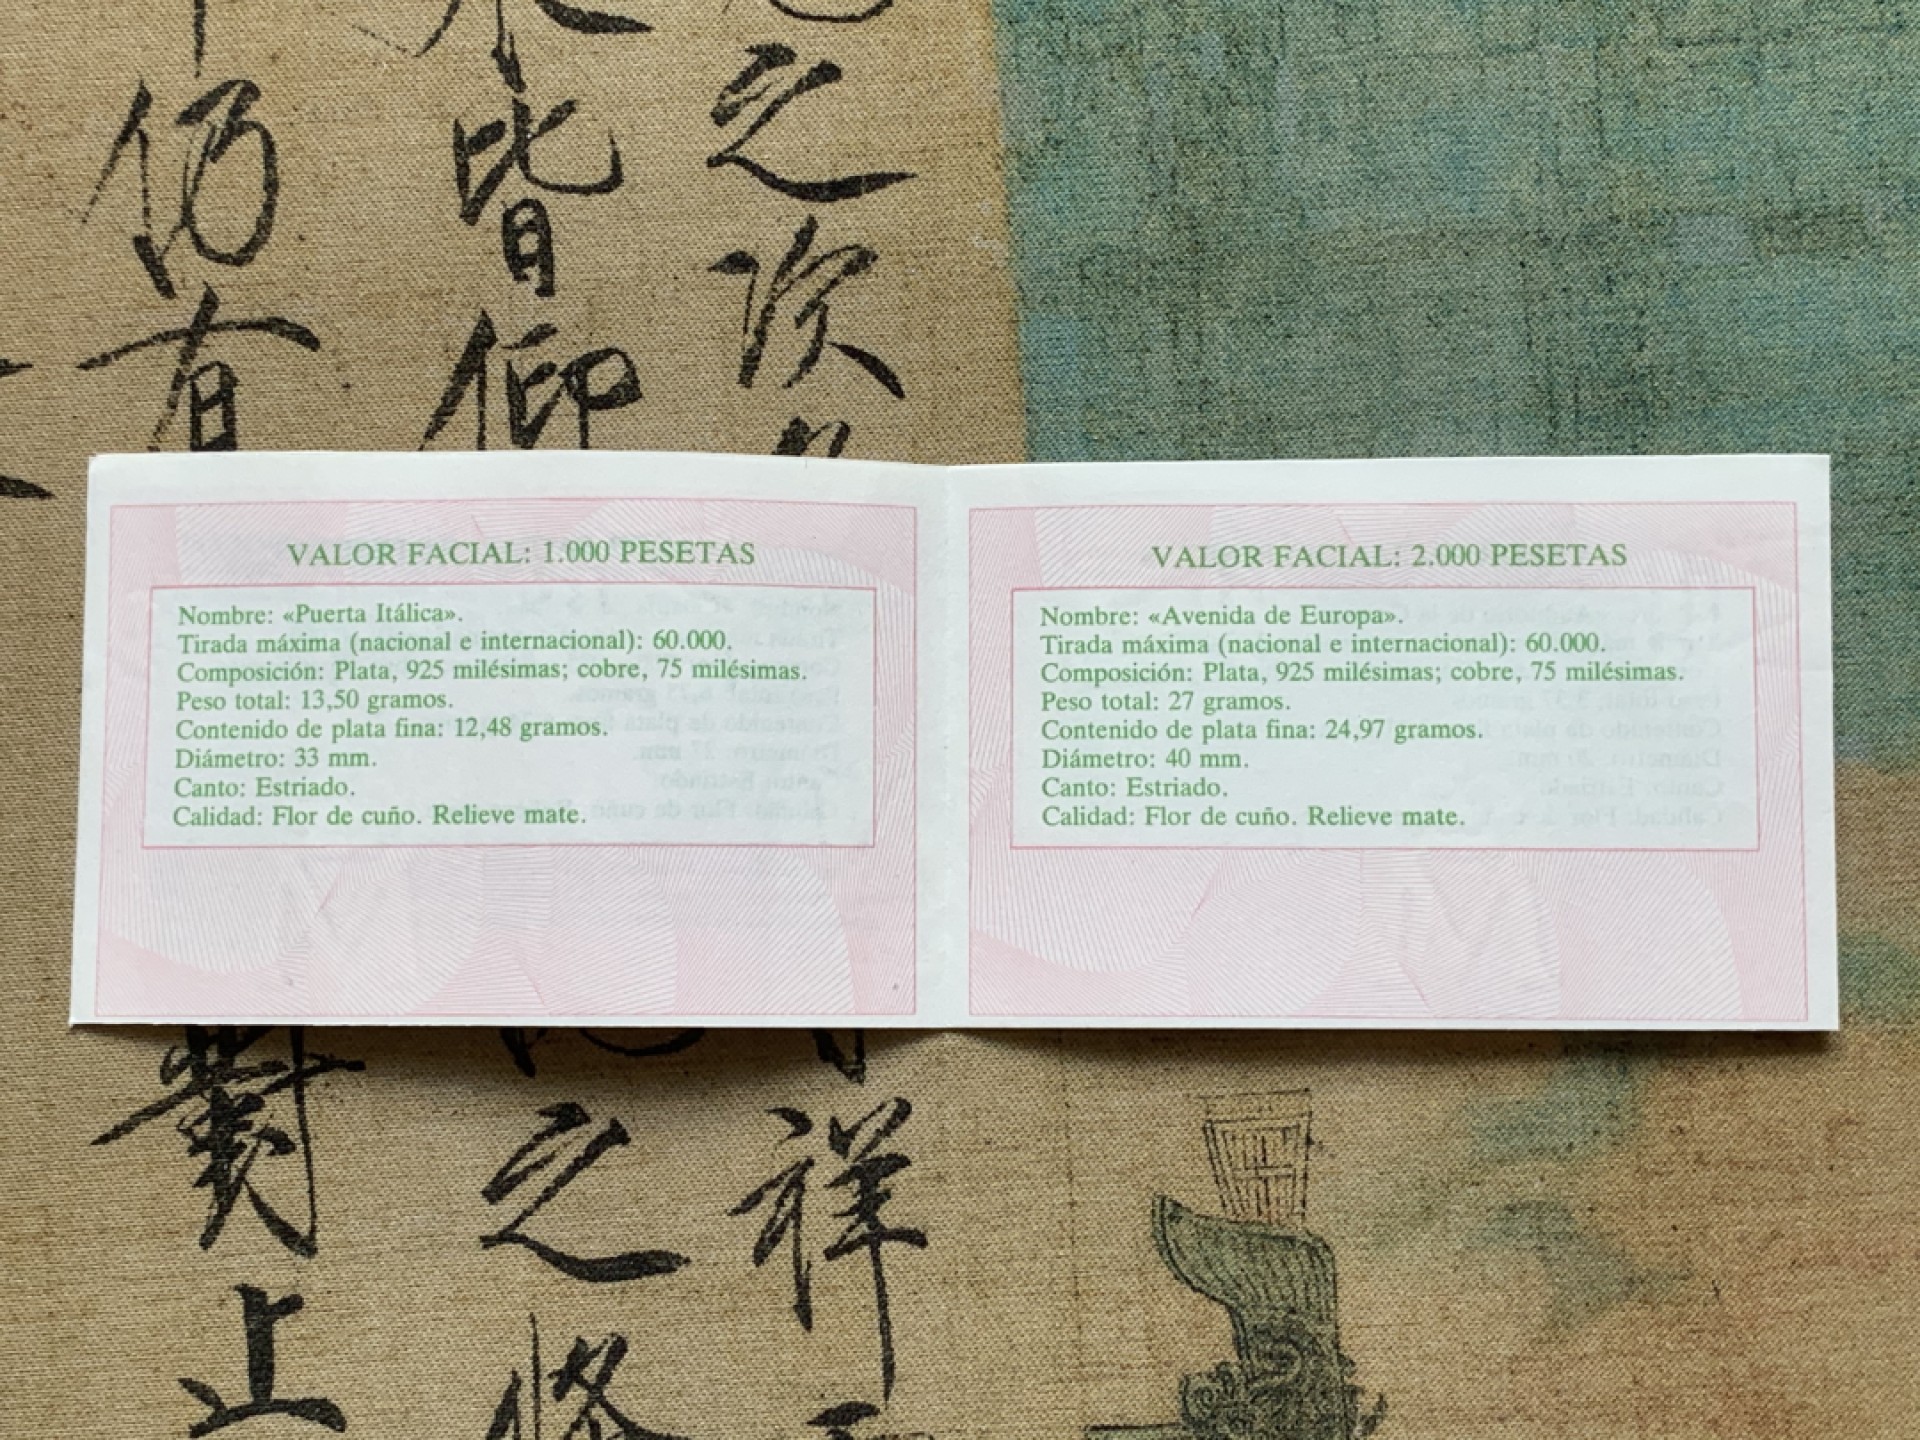 VALOR FACIAL: 1.000 PESETAS
Nombre: «Puerta Itálica».
Tirada máxima (nacional e internacional): 60.000.
Composición: Plata, 925 milésimas; cobre, 75 milésimas.
Peso total: 13,50 gramos.
Contenido de plata fina: 12,48 gramos.
Diámetro: 33 mm.
Canto: Estriado.
Calidad: Flor de cuño. Relieve mate.
VALOR FACIAL: 2.000 PESETAS
Nombre: «Avenida de Europa».
Tirada máxima (nacional e internacional): 60.000.
Composición: Plata, 925 milésimas; cobre, 75 milésimas.
Peso total: 27 gramos.
Contenido de plata fina: 24,97 gramos.
Diámetro: 40 mm.
Canto: Estriado.
Calidad: Flor de cuño. Relieve mate.
之次
祥
皆仰
之
仍有
對止